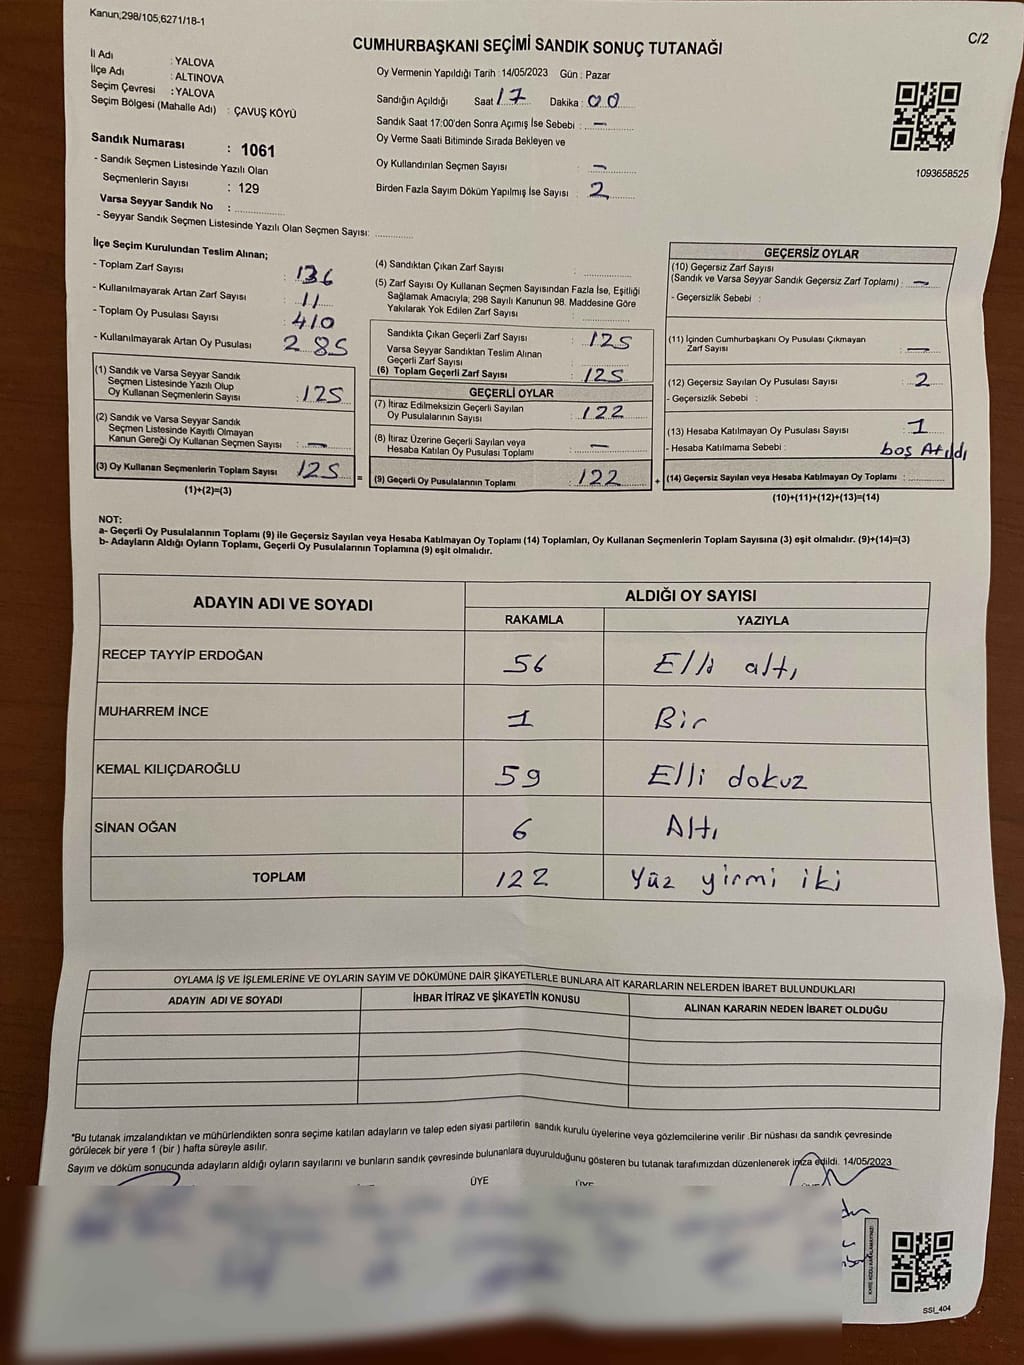 Kanun;298/105,6271/18-1
C/2
CUMHURBAŞKANI SEÇİMİ SANDIK SONUÇ TUTANAĞI
İl Adı : YALOVA
İlçe Adı : ALTINOVA
Seçim Çevresi : YALOVA
Seçim Bölgesi (Mahalle Adı) : ÇAVUŞ KÖYÜ
Sandık Numarası : 1061
- Sandık Seçmen Listesinde Yazılı Olan
Seçmenlerin Sayısı : 129
Varsa Seyyar Sandık No :
- Seyyar Sandık Seçmen Listesinde Yazılı Olan Seçmen Sayısı:
Oy Vermenin Yapıldığı Tarih : 14/05/2023 Gün : Pazar
Sandığın Açıldığı Saat 17 Dakika : 00
Sandık Saat 17:00'den Sonra Açımış İse Sebebi : —
Oy Verme Saati Bitiminde Sırada Bekleyen ve
Oy Kullandırılan Seçmen Sayısı —
Birden Fazla Sayım Döküm Yapılmış İse Sayısı : 2
1093658525
İlçe Seçim Kurulundan Teslim Alınan;
- Toplam Zarf Sayısı : 136
- Kullanılmayarak Artan Zarf Sayısı : 11
- Toplam Oy Pusulası Sayısı : 410
- Kullanılmayarak Artan Oy Pusulası 285
(1) Sandık ve Varsa Seyyar Sandık
Seçmen Listesinde Yazılı Olup
Oy Kullanan Seçmenlerin Sayısı : 125
(2) Sandık ve Varsa Seyyar Sandık
Seçmen Listesinde Kayıtlı Olmayan
Kanun Gereği Oy Kullanan Seçmen Sayısı : —
(3) Oy Kullanan Seçmenlerin Toplam Sayısı 125
(1)+(2)=(3)
=
(4) Sandıktan Çıkan Zarf Sayısı :
(5) Zarf Sayısı Oy Kullanan Seçmen Sayısından Fazla İse, Eşitliği
Sağlamak Amacıyla; 298 Sayılı Kanunun 98. Maddesine Göre
Yakılarak Yok Edilen Zarf Sayısı :
Sandıkta Çıkan Geçerli Zarf Sayısı : 125
Varsa Seyyar Sandıktan Teslim Alınan
Geçerli Zarf Sayısı :
(6) Toplam Geçerli Zarf Sayısı : 125
GEÇERLİ OYLAR
(7) İtiraz Edilmeksizin Geçerli Sayılan
Oy Pusulalarının Sayısı : 122
(8) İtiraz Üzerine Geçerli Sayılan veya
Hesaba Katılan Oy Pusulası Toplamı : —
(9) Geçerli Oy Pusulalarının Toplamı : 122
+
GEÇERSİZ OYLAR
(10) Geçersiz Zarf Sayısı
(Sandık ve Varsa Seyyar Sandık Geçersiz Zarf Toplamı) : —
- Geçersizlik Sebebi :
(11) İçinden Cumhurbaşkanı Oy Pusulası Çıkmayan
Zarf Sayısı : —
(12) Geçersiz Sayılan Oy Pusulası Sayısı : 2
- Geçersizlik Sebebi :
(13) Hesaba Katılmayan Oy Pusulası Sayısı : 1
- Hesaba Katılmama Sebebi : boş Atıldı
(14) Geçersiz Sayılan veya Hesaba Katılmayan Oy Toplamı :
(10)+(11)+(12)+(13)=(14)
NOT:
a- Geçerli Oy Pusulalarının Toplamı (9) ile Geçersiz Sayılan veya Hesaba Katılmayan Oy Toplamı (14) Toplamları, Oy Kullanan Seçmenlerin Toplam Sayısına (3) eşit olmalıdır. (9)+(14)=(3)
b- Adayların Aldığı Oyların Toplamı, Geçerli Oy Pusulalarının Toplamına (9) eşit olmalıdır.
ADAYIN ADI VE SOYADI
ALDIĞI OY SAYISI
RAKAMLA YAZIYLA
RECEP TAYYİP ERDOĞAN 56 Elli altı
MUHARREM İNCE 1 Bir
KEMAL KILIÇDAROĞLU 59 Elli dokuz
SİNAN OĞAN 6 Altı
TOPLAM 122 Yüz yirmi iki
OYLAMA İŞ VE İŞLEMLERİNE VE OYLARIN SAYIM VE DÖKÜMÜNE DAİR ŞİKAYETLERLE BUNLARA AİT KARARLARIN NELERDEN İBARET BULUNDUKLARI
ADAYIN ADI VE SOYADI İHBAR İTİRAZ VE ŞİKAYETİN KONUSU ALINAN KARARIN NEDEN İBARET OLDUĞU
*Bu tutanak imzalandıktan ve mühürlendikten sonra seçime katılan adayların ve talep eden siyasi partilerin sandık kurulu üyelerine veya gözlemcilerine verilir .Bir nüshası da sandık çevresinde
görülecek bir yere 1 (bir ) hafta süreyle asılır.
Sayım ve döküm sonucunda adayların aldığı oyların sayılarını ve bunların sandık çevresinde bulunanlara duyurulduğunu gösteren bu tutanak tarafımızdan düzenlenerek imza edildi. 14/05/2023
ÜYE ÜYE
KARE KODU KARALAMAYINIZ!
SSI_404